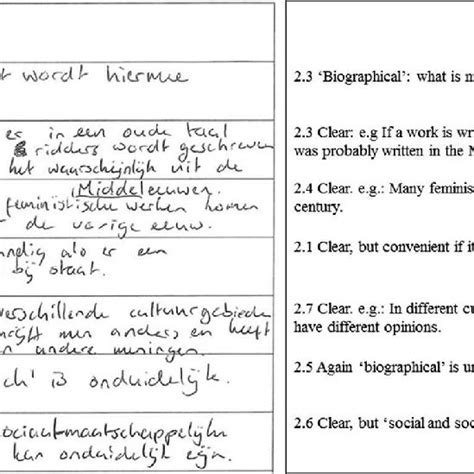 t wordt hiermee
er in een oude taal
ridders wordt geschreven
het waarschijnlijk uit de
Middeleeuwen.
feministische werken komen
de vorige eeuw.
ndig als er een
bij staat.
verschillende cultuurgebieden
men anders en heeft
andere meningen.
ch' is onduidelijk.
ociaal-maatschappelijk
kan onduidelijk zijn.
2.3 ‘Biographical’: what is m
2.3 Clear: e.g If a work is wri
was probably written in the M
2.4 Clear. e.g.: Many feminis
century.
2.1 Clear, but convenient if it
2.7 Clear. e.g.: In different cu
have different opinions.
2.5 Again ‘biographical’ is un
2.6 Clear, but ‘social and soc